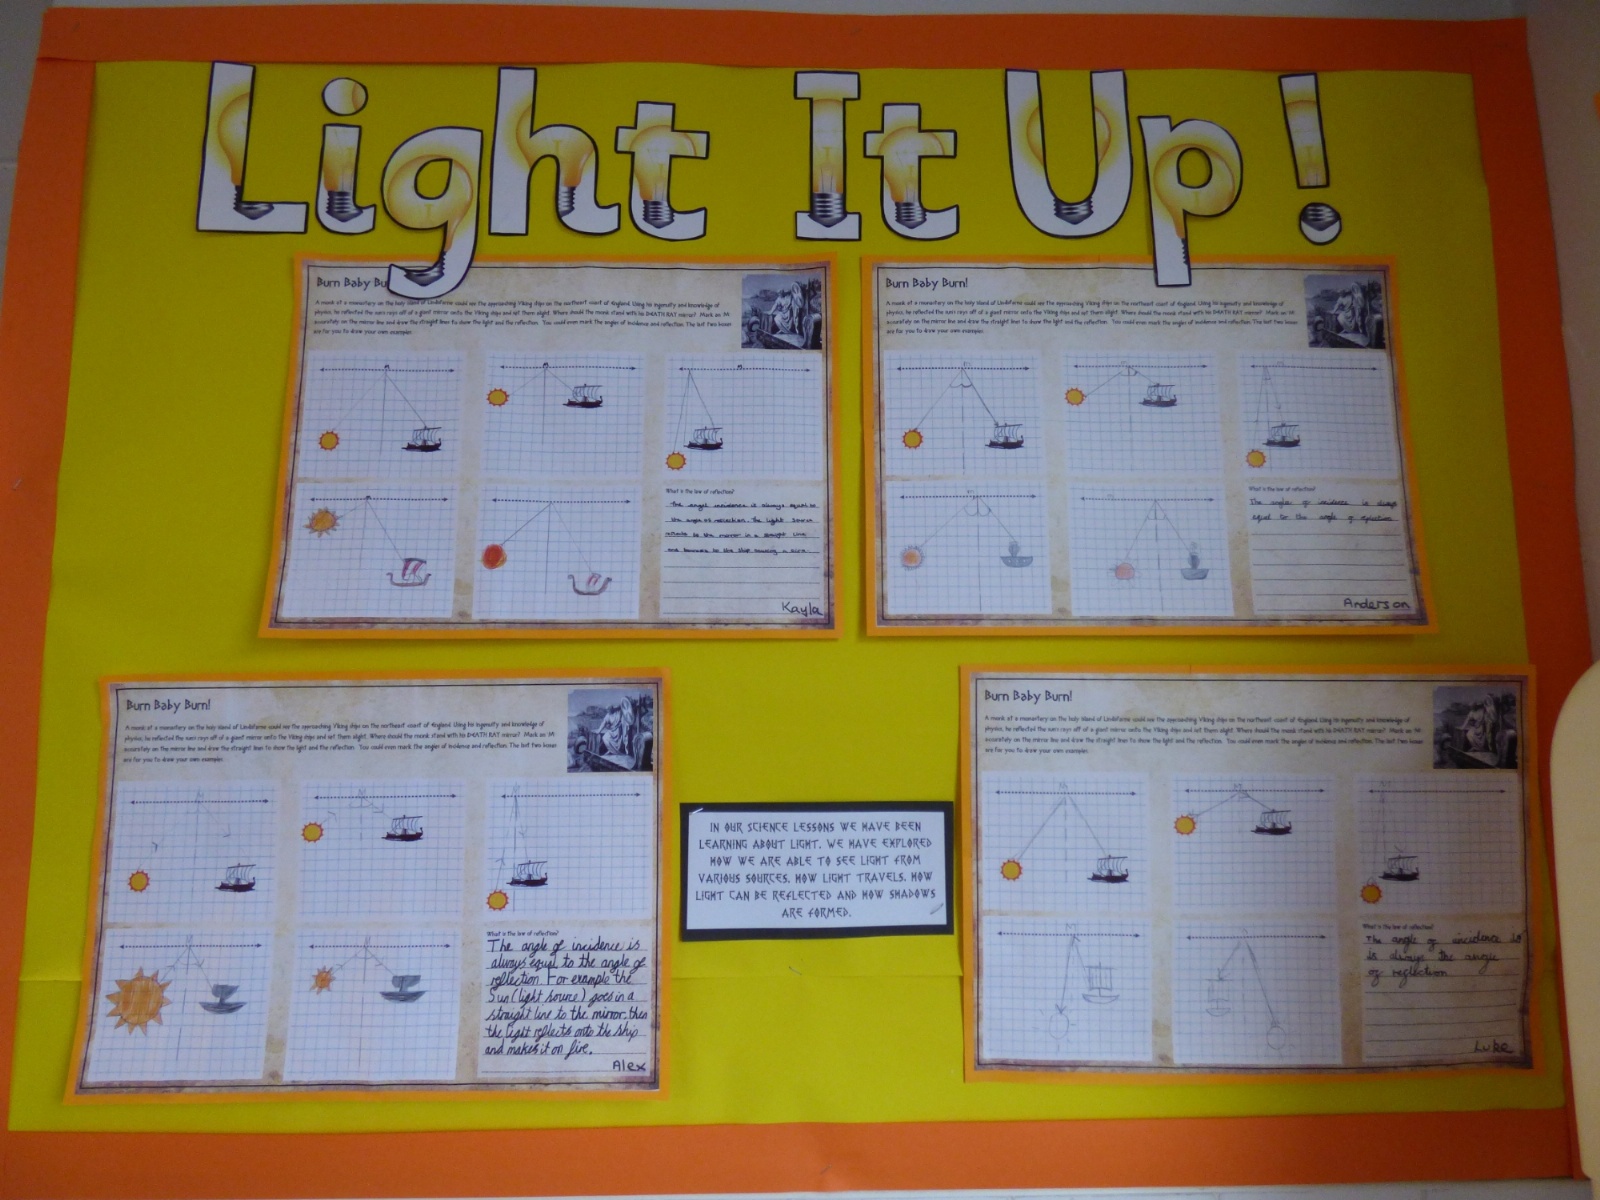 Light It Up!
Burn Baby Bu
A monk at a monastery on the holy island of Lindisfarne could see the approaching Viking ships on the northeast coast of England. Using his ingenuity and knowledge of
physics, he reflected the sun's rays off of a giant mirror onto the Viking ships and set them alight. Where should the monk stand with his DEATH RAY mirror? Mark an 'M'
accurately on the mirror line and draw the straight lines to show the light and the reflection. You could even mark the angles of incidence and reflection. The last two boxes
are for you to draw your own examples.
What is the law of reflection?
The angel incidence is always equal to
the angle of reflection. The light source
reflects to the mirror in a straight line
and bounces to the ship causing a fire.
Kayla
Burn Baby Burn!
A monk at a monastery on the holy island of Lindisfarne could see the approaching Viking ships on the northeast coast of England. Using his ingenuity and knowledge of
physics, he reflected the sun's rays off of a giant mirror onto the Viking ships and set them alight. Where should the monk stand with his DEATH RAY mirror? Mark an 'M'
accurately on the mirror line and draw the straight lines to show the light and the reflection. You could even mark the angles of incidence and reflection. The last two boxes
are for you to draw your own examples.
What is the law of reflection?
The angles of incidence is always
equal to the angle of reflection
Anderson
Burn Baby Burn!
A monk at a monastery on the holy island of Lindisfarne could see the approaching Viking ships on the northeast coast of England. Using his ingenuity and knowledge of
physics, he reflected the sun's rays off of a giant mirror onto the Viking ships and set them alight. Where should the monk stand with his DEATH RAY mirror? Mark an 'M'
accurately on the mirror line and draw the straight lines to show the light and the reflection. You could even mark the angles of incidence and reflection. The last two boxes
are for you to draw your own examples.
What is the law of reflection?
The angle of incidence is
always equal to the angle of
reflection. For example the
Sun (light source) goes in a
straight line to the mirror. then
the light reflects onto the ship
and makes it on fire.
Alex
IN OUR SCIENCE LESSONS WE HAVE BEEN
LEARNING ABOUT LIGHT. WE HAVE EXPLORED
HOW WE ARE ABLE TO SEE LIGHT FROM
VARIOUS SOURCES, HOW LIGHT TRAVELS, HOW
LIGHT CAN BE REFLECTED AND HOW SHADOWS
ARE FORMED.
Burn Baby Burn!
A monk at a monastery on the holy island of Lindisfarne could see the approaching Viking ships on the northeast coast of England. Using his ingenuity and knowledge of
physics, he reflected the sun's rays off of a giant mirror onto the Viking ships and set them alight. Where should the monk stand with his DEATH RAY mirror? Mark an 'M'
accurately on the mirror line and draw the straight lines to show the light and the reflection. You could even mark the angles of incidence and reflection. The last two boxes
are for you to draw your own examples.
What is the law of reflection?
The angle of incidence is
is always the angle
of reglection
Luke